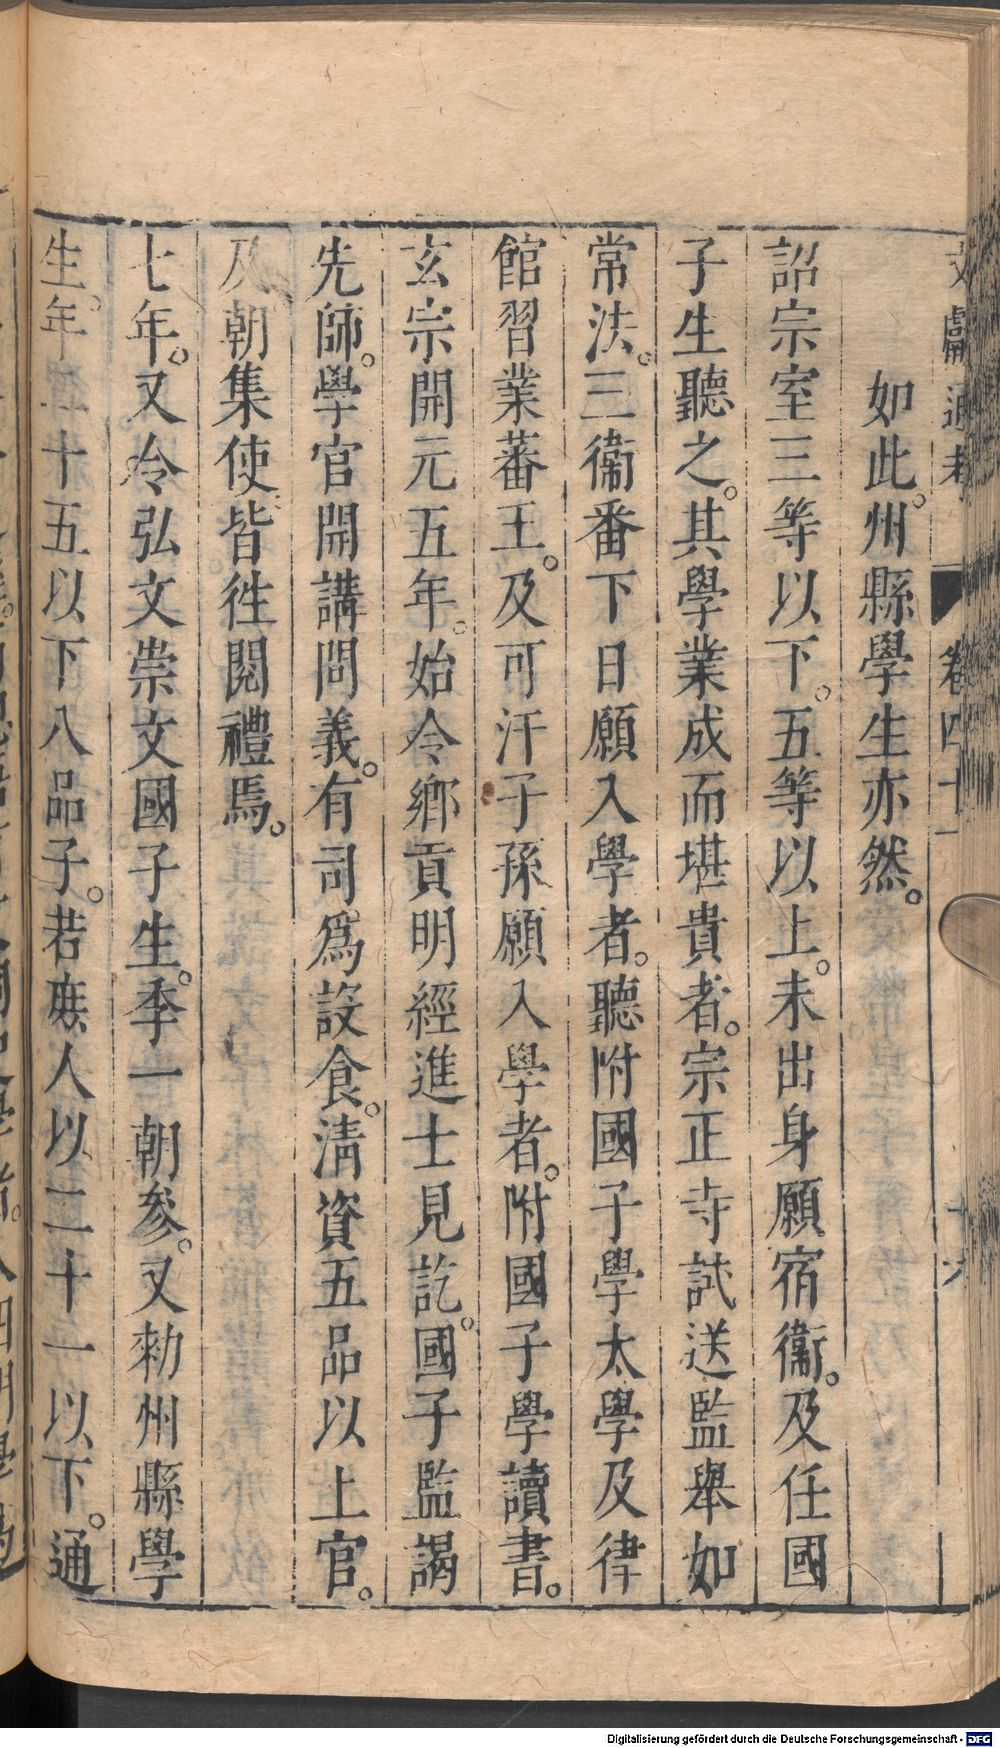 文獻通考 卷四十一 十六
如此。州縣學生亦然。
詔宗室三等以下。五等以上。未出身願宿衞。及任國
子生聽之。其學業成而堪貴者。宗正寺試送監舉如
常法。三衞番下日願入學者。聽附國子學太學及律
館習業蕃王。及可汗子孫願入學者。附國子學讀書。
玄宗開元五年。始令鄉貢明經進士見訖。國子監謁
先師。學官開講問義。有司爲設食。淸資五品以上官。
及朝集使皆徃閱禮焉。
七年。又令弘文崇文國子生。季一朝參。又勑州縣學
生。年年十五以下八品子。若庶人以二十一以下。通
Digitalisierung gefördert durch die Deutsche Forschungsgemeinschaft - DFG